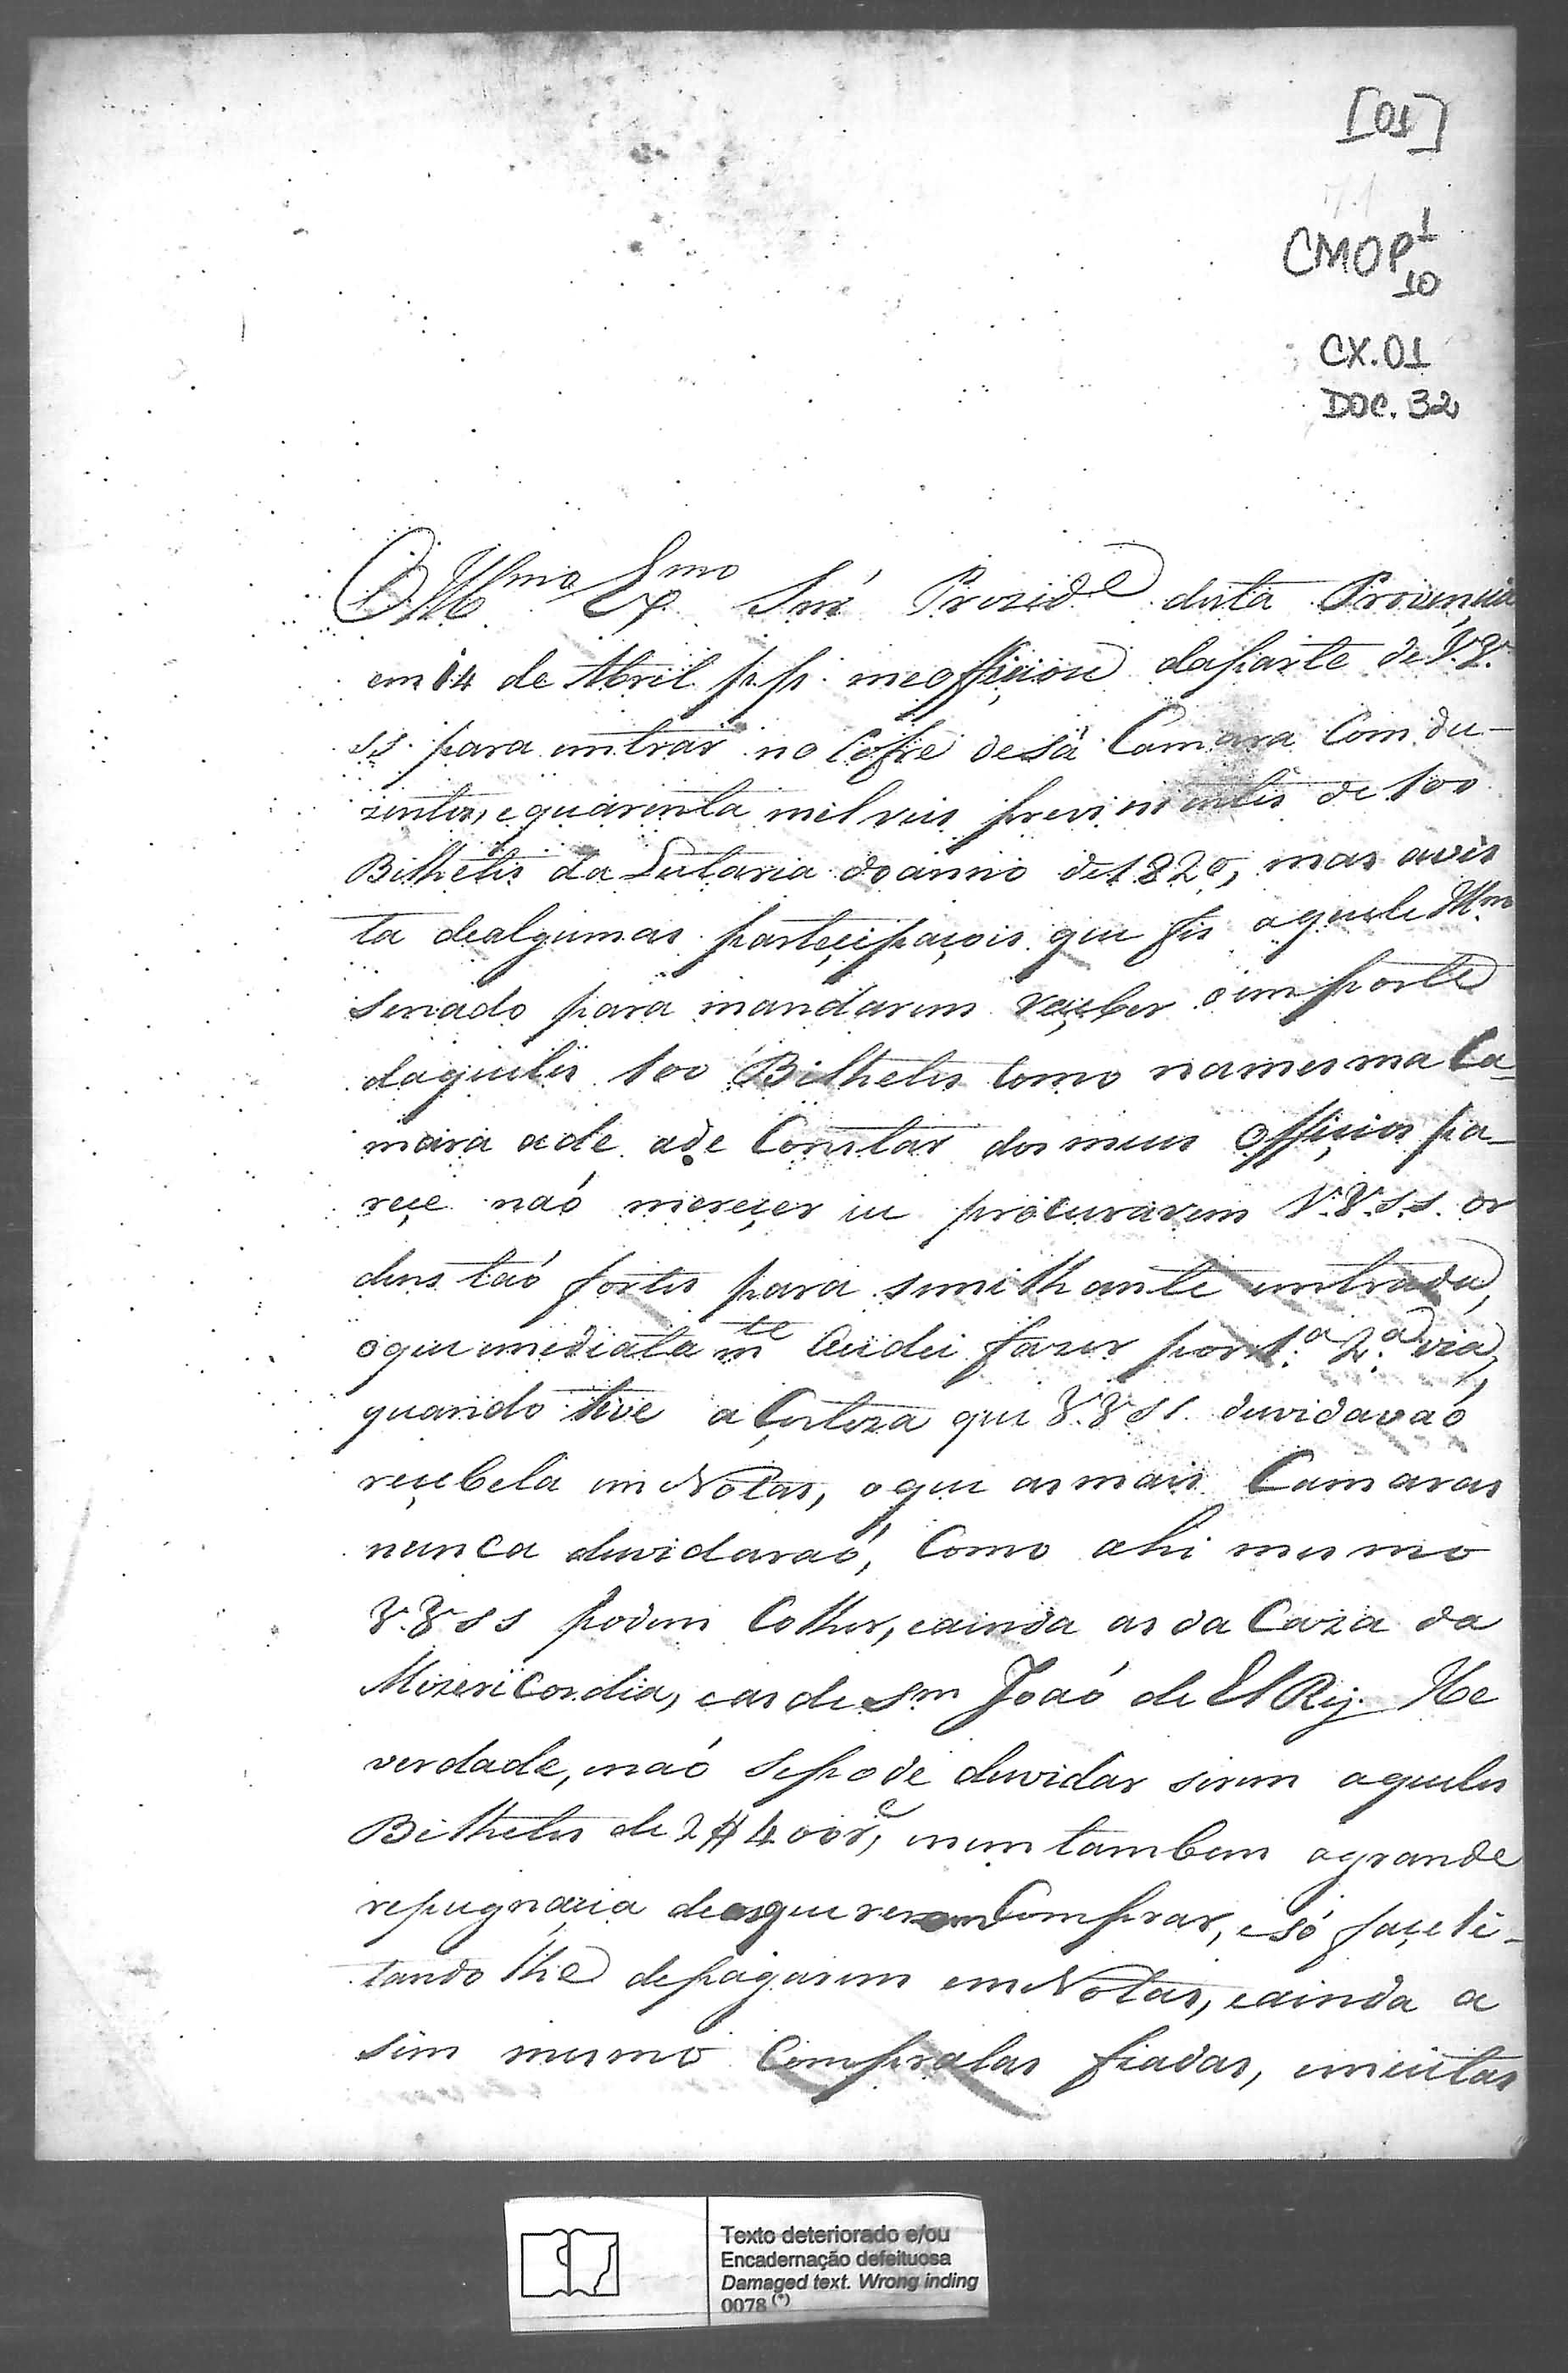 [01]
CMOP 1
10
CX.01
DOC. 32
O Illmo Exmo Snr Prezide desta Provincia
em 14 de Abril p.p. meofficiou daparte de V.V.
SS. para entrar no Cofre desa Camara Com du-
zentos, equarenta mil reis provinientes de 100
Bilhetes da Lutaria doanno de 1820, mas avis
ta dealgumas parteçipaçois que fis aquele Illm
Senado para mandarem reçeber oimporte
daqueles 100 Bilhetes Como namesma Ca-
mara ade ade Constar dos meus Offiçios pa-
reçe naó mereçer eu procurarem V.V.S.S. or
dens taó fortes para semilhante entrada,
oque imediatamte Cuidei fazer por 1.a 2.a via,
quando tive a Çerteza que V.V SS. duvidavaó
reçebela em Notas, oque asmais Camaras
nunca duvidaraó, Como ahi mesmo
V.V SS podem Colher, eainda as da Caza da
Mizericordia, easde Sm Joaó de El Rej. He
verdade, enaó Sepode duvidar serem aqueles
Bilhetes de 2$400re, nem tambem agrande
repugnaçia deasquererem Comprar, esó façeli-
tando lhe depagarem em Notas, eainda a
sim mesmo Compralas fiadas, emuitas
Texto deteriorado e/ou
Encadernação defeituosa
Damaged text. Wrong inding
0078 (*)